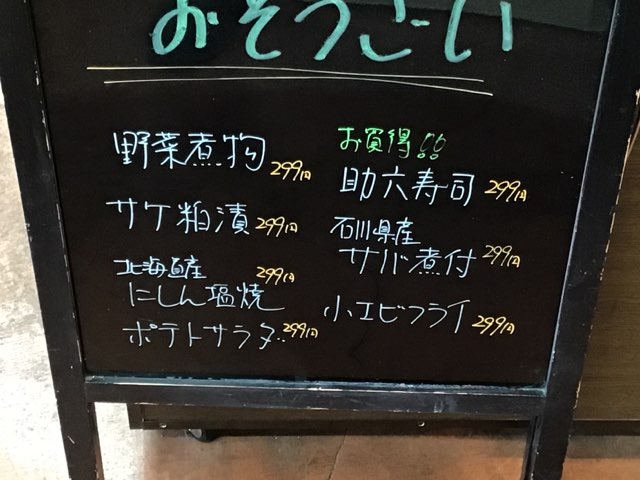 おそうざい
野菜煮物 299円
サケ粕漬 299円
北海道産 299円
にしん塩焼
ポテトサラダ 299円
お買得!!
助六寿司 299円
石川県産
サバ煮付 299円
小エビフライ 299円